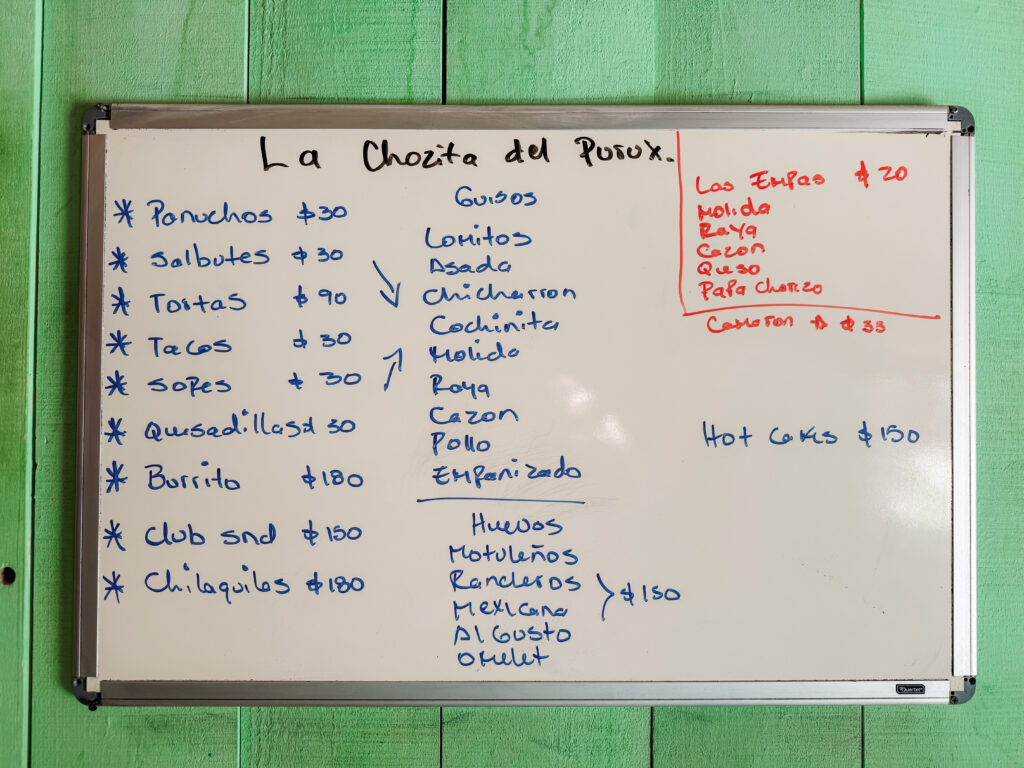 La Chozita del Purux.
* Panuchos $30
* Salbutes $30
* Tortas $90
* Tacos $30
* Sopes $30
* Quesadillas $30
* Burrito $180
* Club snd $150
* Chilaquiles $180
Guisos
Lomitos
Asada
Chicharron
Cochinita
Molida
Raya
Cazon
Pollo
Empanizado
Huevos
Motuleños
Rancheros
Mexicana
Al Gusto
Omelet
$150
Las Empas $20
Molida
Raya
Cazon
Queso
Papa Chorizo
Camaron $35
Hot Cakes $150
Quartet